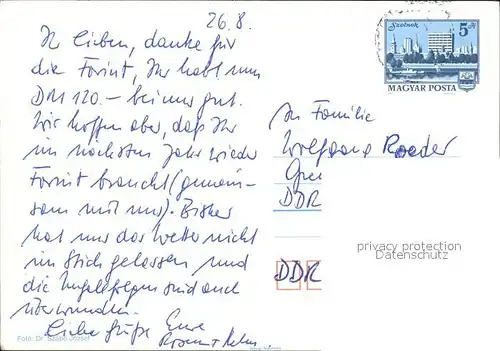 26.8.
Ihr lieben, danke für
die Forint, Ihr habt nun
DM 120.- bei uns gut.
Wir hoffen aber, daß Ihr
im nächsten Jahr wieder
Forint braucht (gemein-
sam mit uns). Bisher
hat uns das Wetter nicht
im Stich gelassen und
die sind auch
überwunden.
Liebe Grüße Eure
Foto: Dr. Szabó József
Szolnok
5 Ft
MAGYAR POSTA
An Familie
Wolfgang Roeder
DDR
privacy protection
DDR